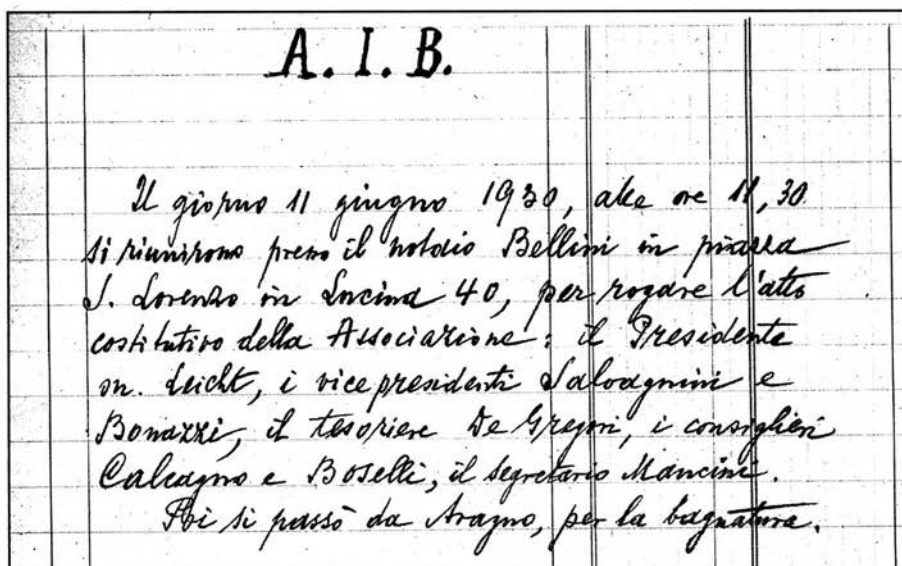 A. I. B.
Il giorno 11 giugno 1930, alle ore 11,30
si riunirono presso il notaio Bellini in piazza
S. Lorenzo in Lucina 40, per rogare l'atto
costitutivo della Associazione: il Presidente
on. Leicht, i vice presidenti Salvagnini e
Bonazzi, il tesoriere De Gregori, i consiglieri
Calcagno e Boselli, il segretario Mancini.
Poi si passò da Aragno, per la bagnatura.